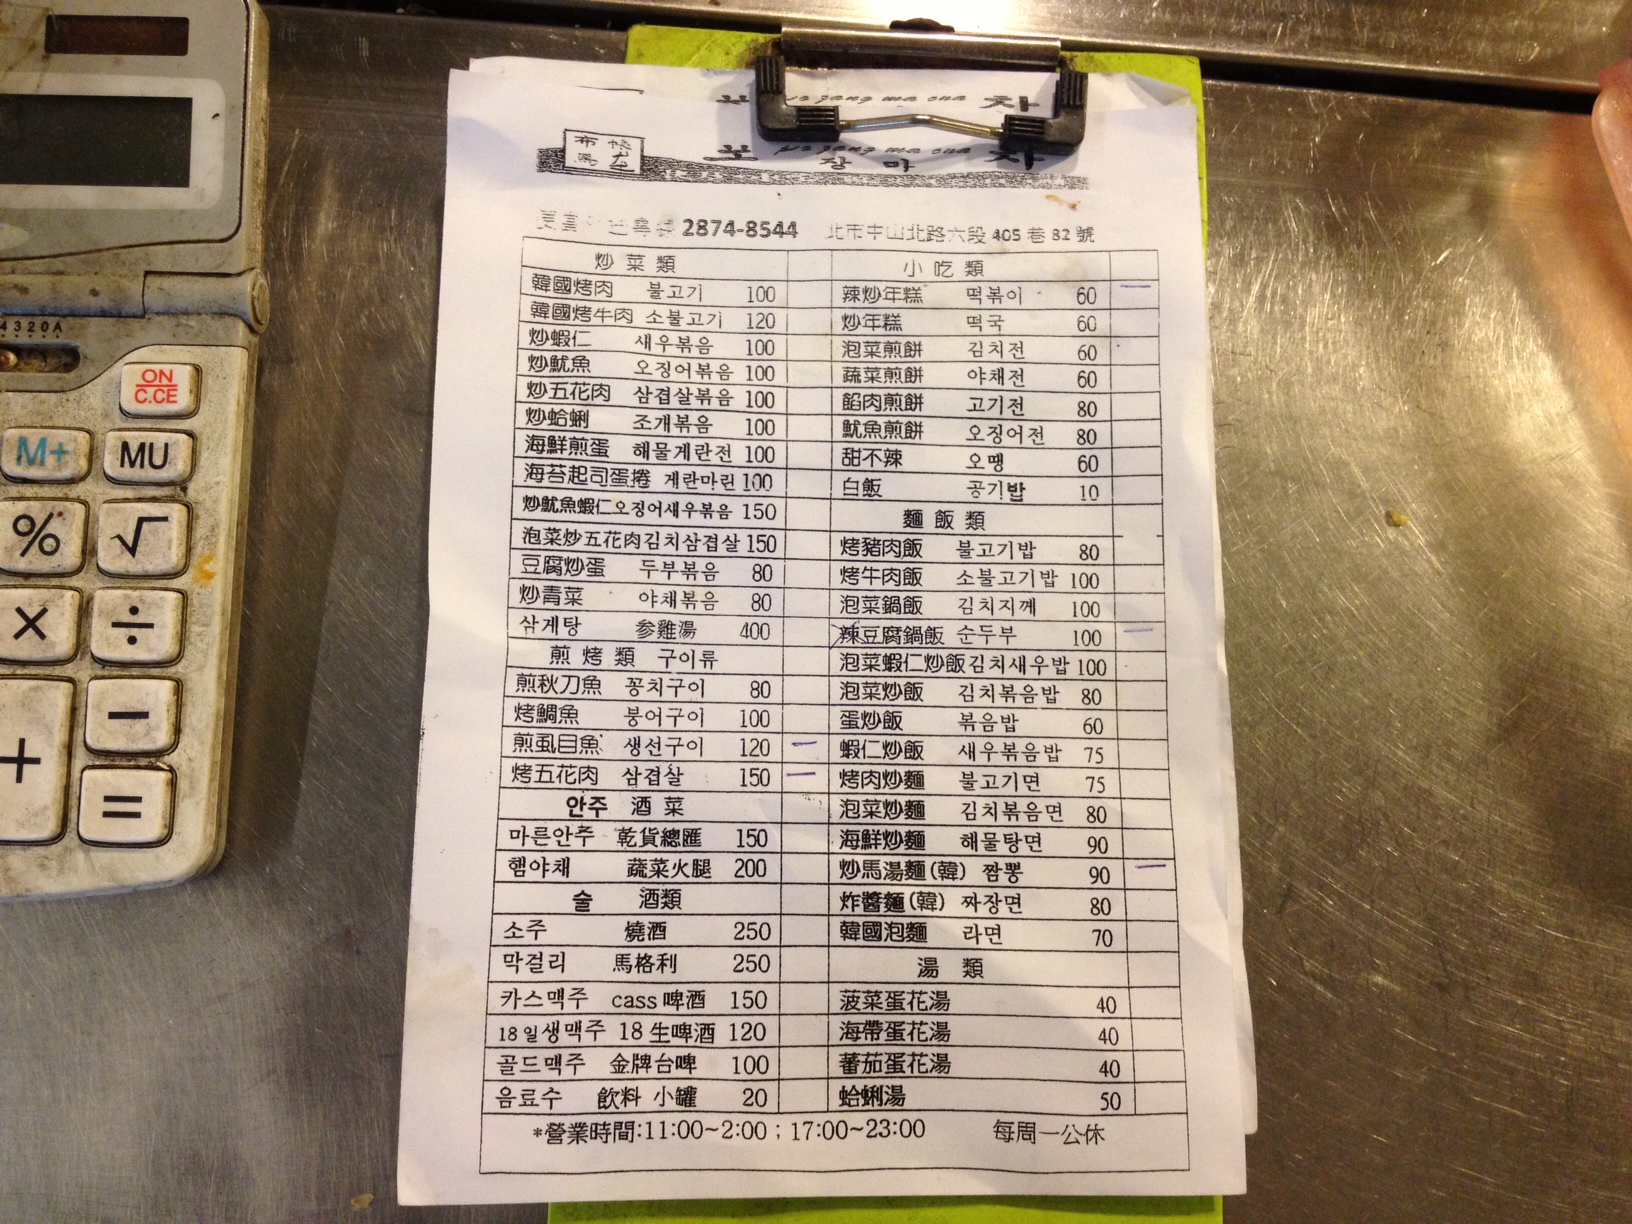 po jang ma cha 차
布帳馬車
포장마차
po jang ma cha
2874-8544 北市中山北路六段 405 巷 82 號
炒菜類
韓國烤肉 불고기 100
韓國烤牛肉 소불고기 120
炒蝦仁 새우볶음 100
炒魷魚 오징어볶음 100
炒五花肉 삼겹살볶음 100
炒蛤蜊 조개볶음 100
海鮮煎蛋 해물게란전 100
海苔起司蛋捲 게란마린 100
炒魷魚蝦仁 오징어새우볶음 150
泡菜炒五花肉 김치삼겹살 150
豆腐炒蛋 두부볶음 80
炒青菜 야채볶음 80
삼게탕 参雞湯 400
煎烤類 구이류
煎秋刀魚 꽁치구이 80
烤鯛魚 붕어구이 100
煎虱目魚 생선구이 120
烤五花肉 삼겹살 150
안주 酒菜
마른안주 乾貨總匯 150
햄야채 蔬菜火腿 200
술 酒類
소주 燒酒 250
막걸리 馬格利 250
카스맥주 cass 啤酒 150
18일생맥주 18 生啤酒 120
골드맥주 金牌台啤 100
음료수 飲料 小罐 20
小吃類
辣炒年糕 떡볶이 60
炒年糕 떡국 60
泡菜煎餅 김치전 60
蔬菜煎餅 야채전 60
餡肉煎餅 고기전 80
魷魚煎餅 오징어전 80
甜不辣 오땡 60
白飯 공기밥 10
麵飯類
烤豬肉飯 불고기밥 80
烤牛肉飯 소불고기밥 100
泡菜鍋飯 김치지께 100
辣豆腐鍋飯 순두부 100
泡菜蝦仁炒飯 김치새우밥 100
泡菜炒飯 김치볶음밥 80
蛋炒飯 볶음밥 60
蝦仁炒飯 새우볶음밥 75
烤肉炒麵 불고기면 75
泡菜炒麵 김치볶음면 80
海鮮炒麵 해물탕면 90
炒馬湯麵(韓) 짬뽕 90
炸醬麵(韓) 짜장면 80
韓國泡麵 라면 70
湯類
菠菜蛋花湯 40
海帶蛋花湯 40
蕃茄蛋花湯 40
蛤蜊湯 50
*營業時間:11:00~2:00；17:00~23:00 每周一公休
4320A
ON
C.CE
M+
MU
%
√
×
÷
−
+
=